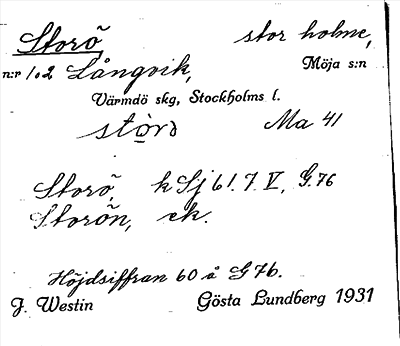 Storö, stor holme,
n:r 1 o. 2 Långvik, Möja s:n
Värmdö skg, Stockholms l.
Ma 41
Storö, k Sj 61. 7 V, G. 76
Storön, ek.
Höjdsiffran 60 å G 76.
J. Westin Gösta Lundberg 1931